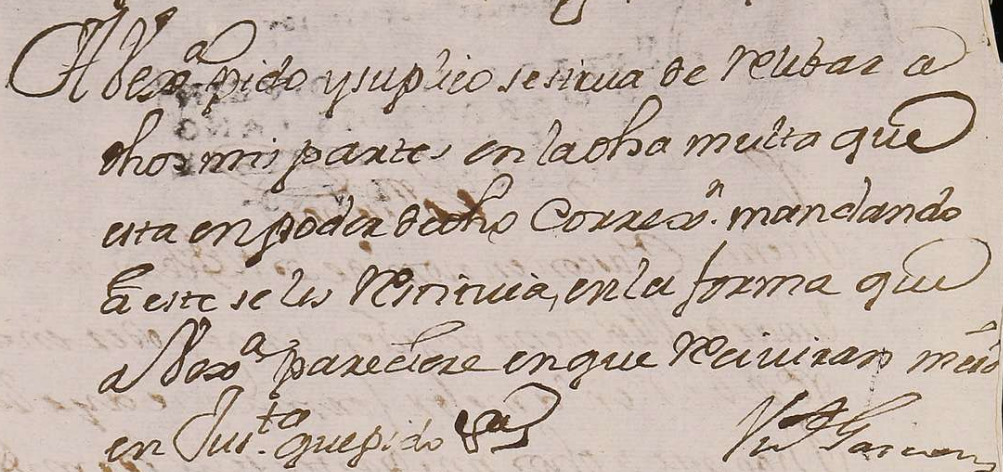 A Vexª pido y suplico se sirua de
dhos mis partes en la dha multa que
esta en poder de dho Correxʳ. mandando
a este se les Restituia, en la forma que
a Vexª pareciere en que Reciuiran mrd
en Justª. que pido &ª